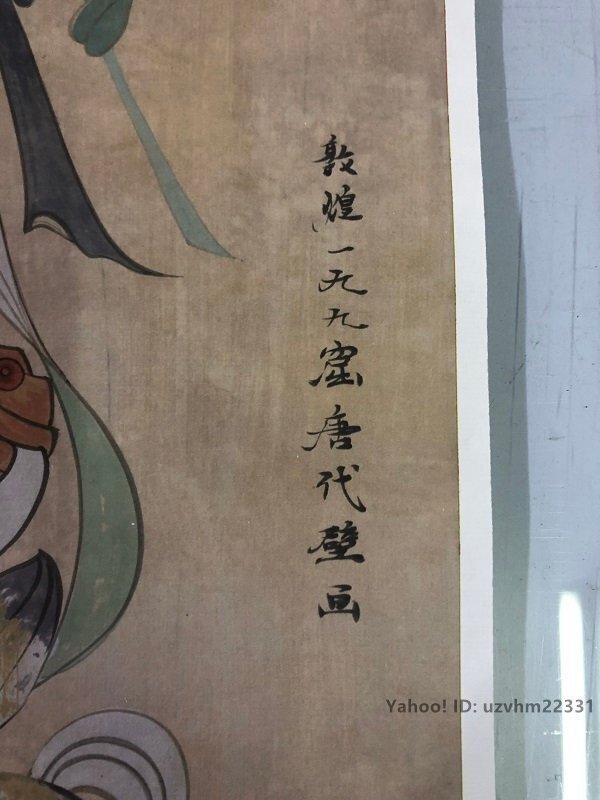 敦煌一九九窟唐代壁画
Yahoo! ID: uzvhm22331